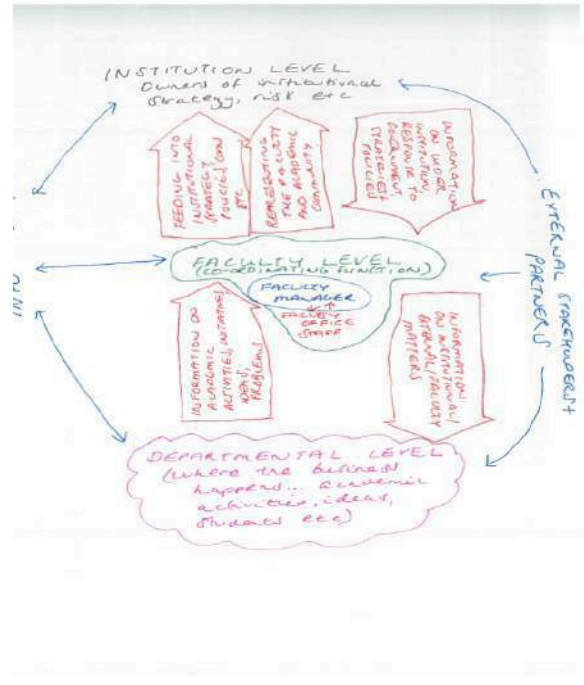 INSTITUTION LEVEL
Owners of institutional
strategy, risk etc
FEEDING INTO
INSTITUTIONAL
STRATEGY
POLICIES, COM
ETC
REPRESENTING
THE FACULTY
AND ACADEMIC
COMMUNITY
INFORMATION
ON WIDER
INSTITUTION
RESPONSE TO
GOVERNMENT
STRATEGIES +
POLICIES
FACULTY LEVEL
(CO-ORDINATING FUNCTION)
FACULTY
MANAGER
FACULTY
OFFICE
STAFF
INTO
EXTERNAL STAKEHOLDERS +
PARTNERS
INFORMATION ON
ACADEMIC
ACTIVITIES, INITIATIVES
IDEAS,
PROBLEMS
INFORMATION
ON INSTITUTIONAL/
EXTERNAL/FACULTY
MATTERS
DEPARTMENTAL LEVEL
(where the business
happens... academic
activities, ideas,
students etc)